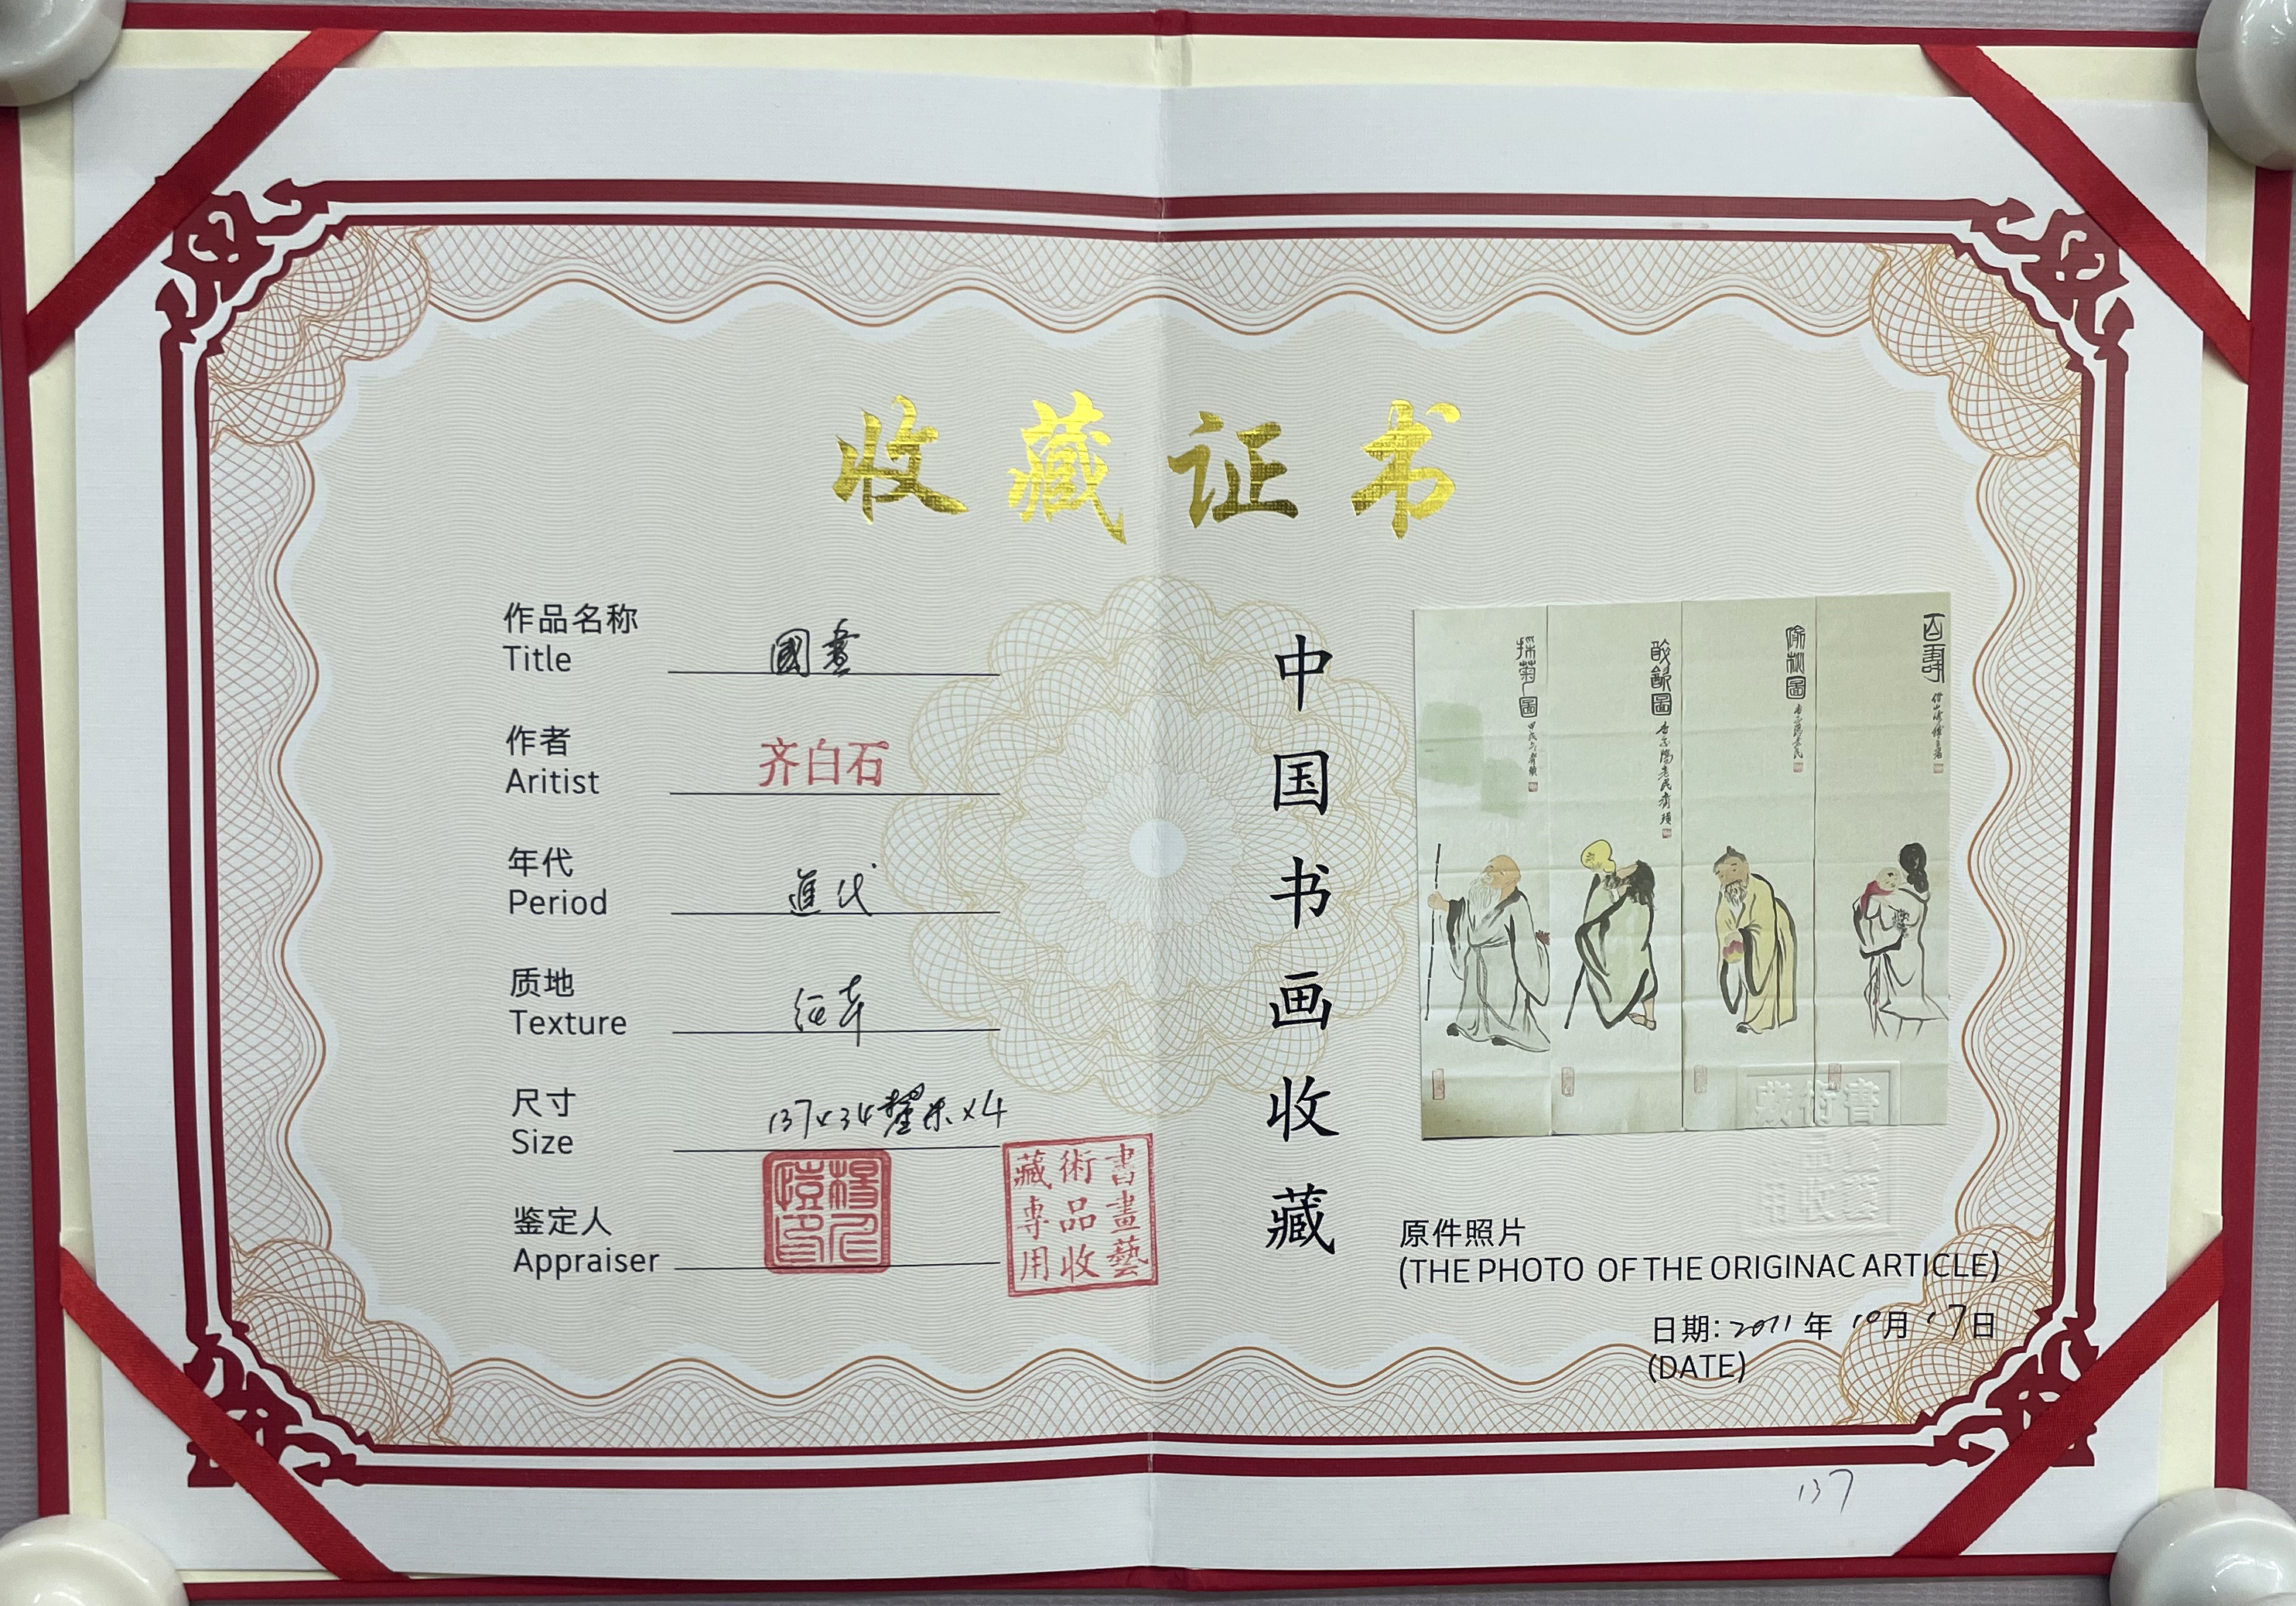 收藏证书
作品名称
Title
國畫
作者
Aritist
齐白石
年代
Period
近代
质地
Texture
纸本
尺寸
Size
137x34釐米x4
鉴定人
Appraiser
書畫藝
術品收
藏專用
中国书画收藏
百壽
偷桃圖
採菊圖
原件照片
(THE PHOTO OF THE ORIGINAC ARTICLE)
日期: 2011年10月17日
(DATE)
137